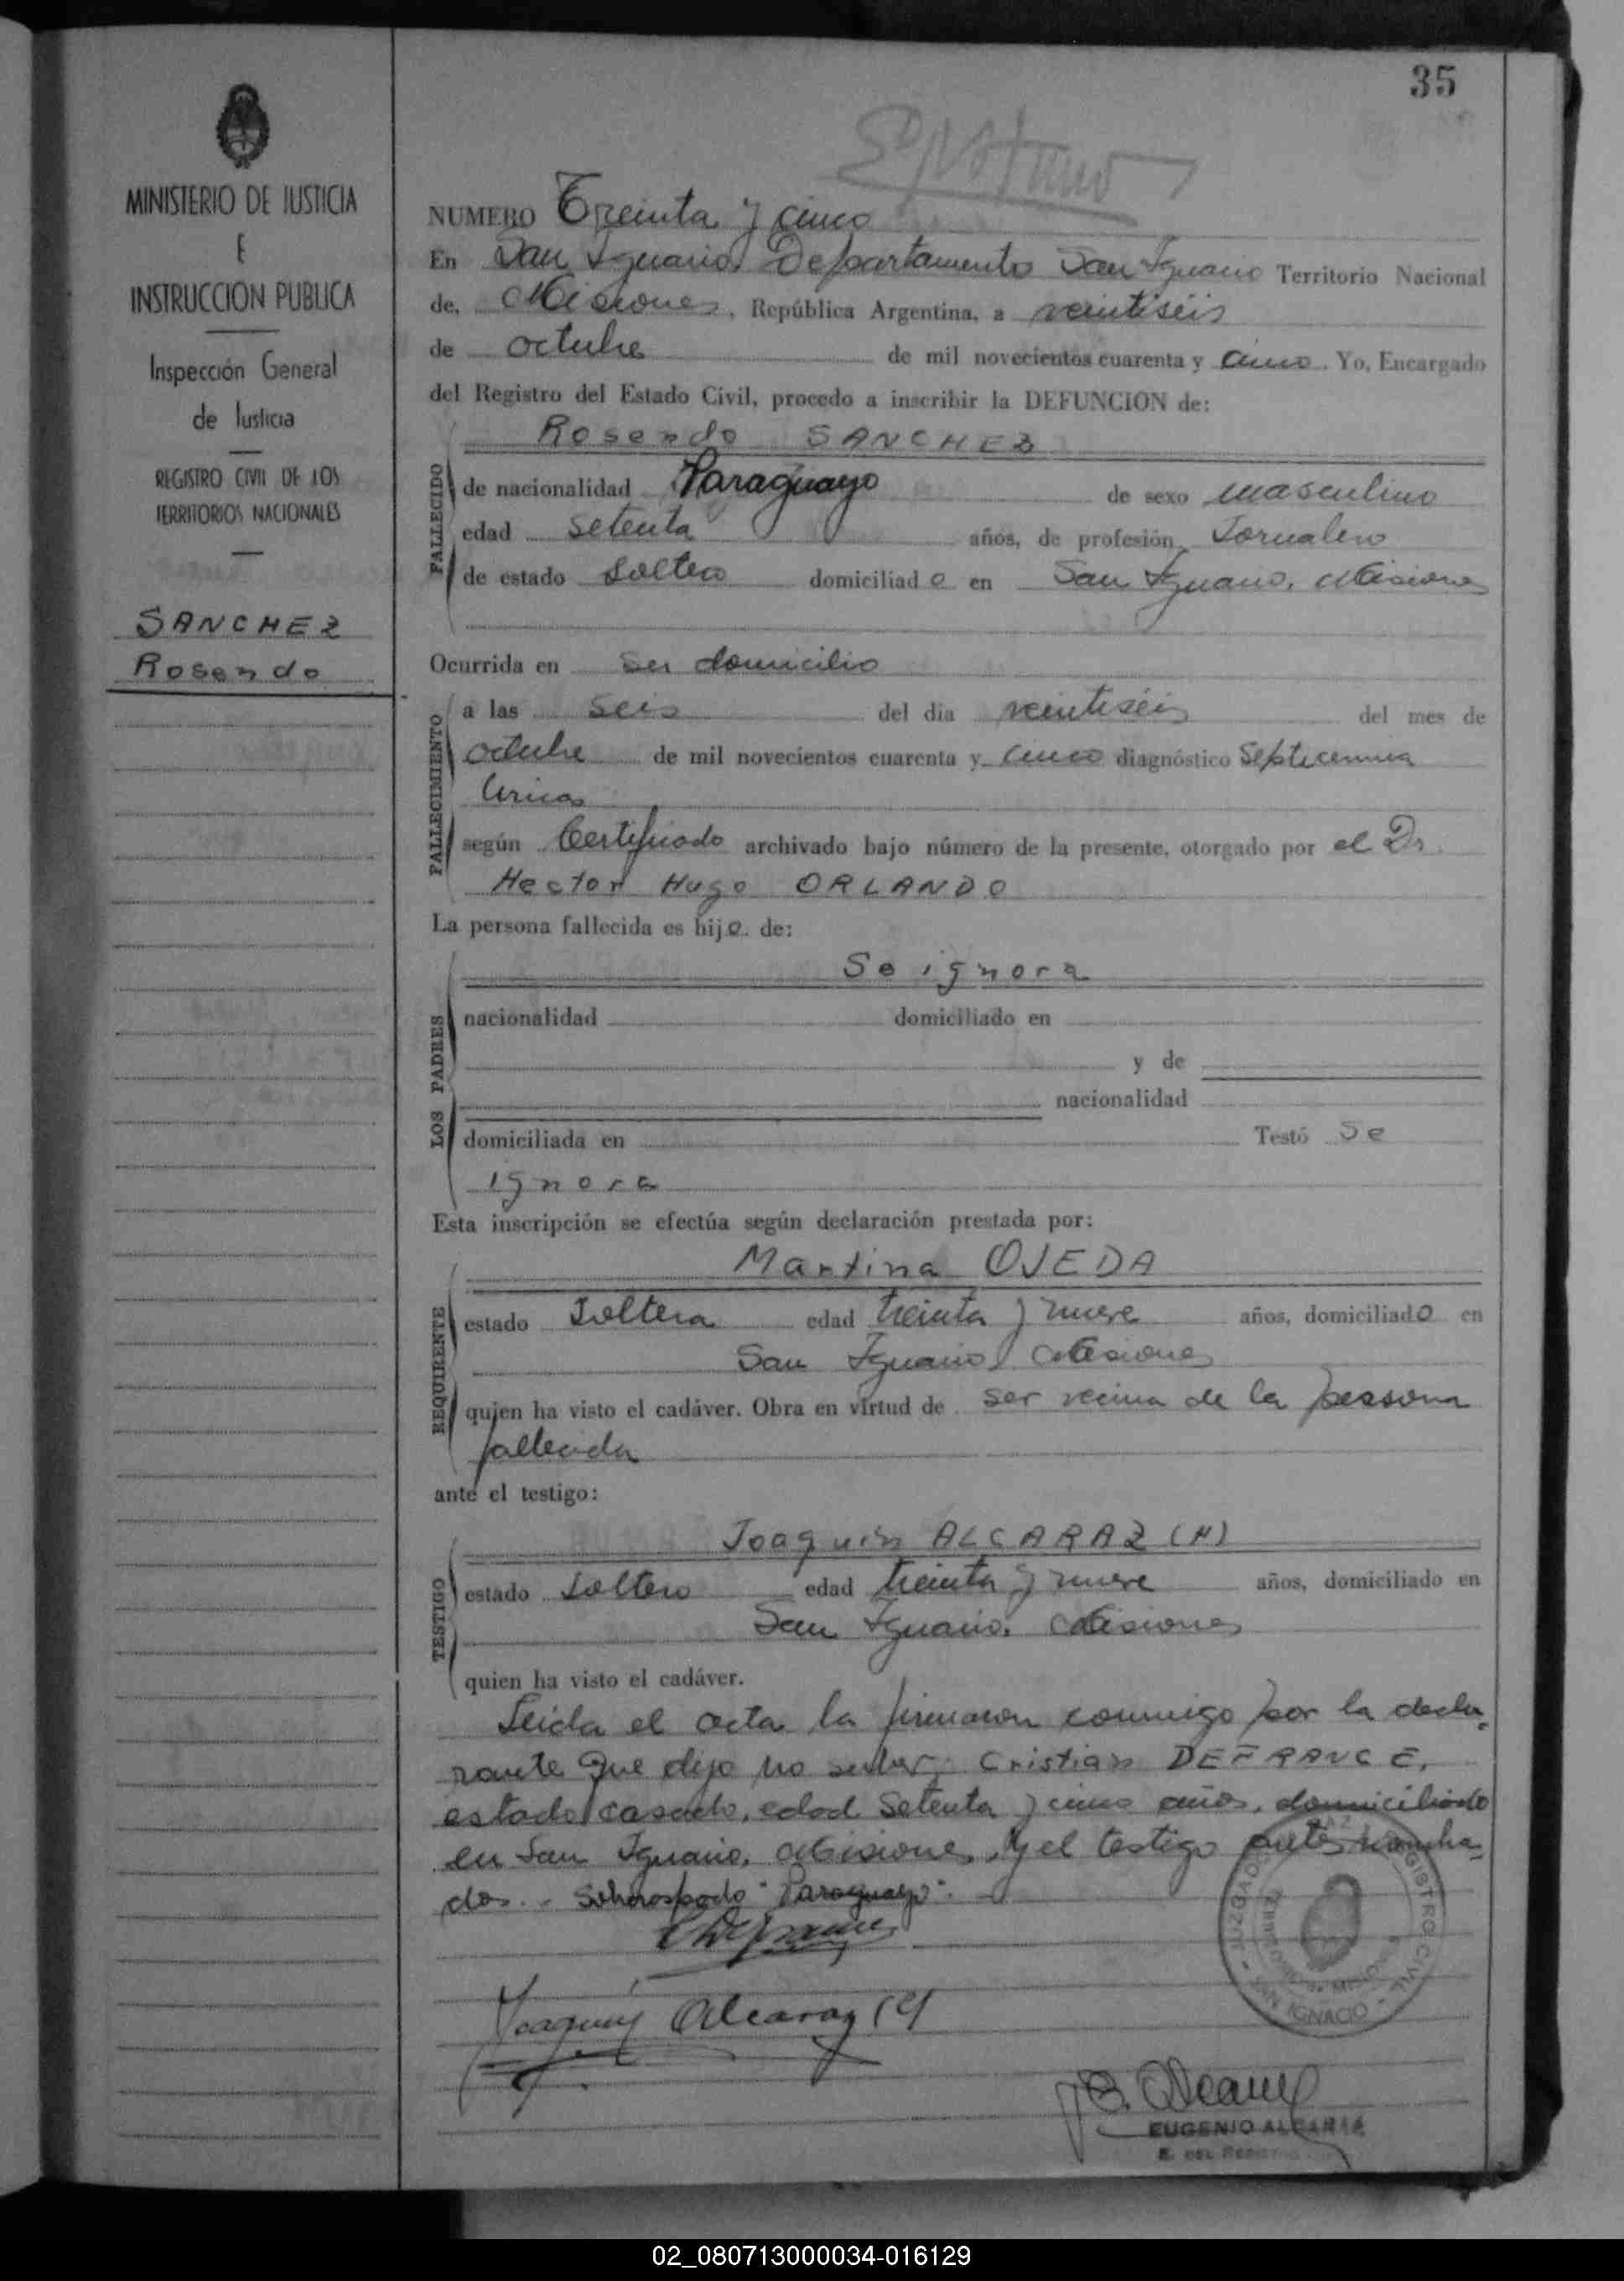 35
MINISTERIO DE JUSTICIA
E
INSTRUCCION PUBLICA
Inspección General
de Justicia
REGISTRO CIVIL DE LOS
TERRITORIOS NACIONALES
SANCHEZ
Rosendo
NUMERO Treinta y cinco
En San Ignacio, Departamento San Ignacio Territorio Nacional
de, Misiones, República Argentina, a veintiséis
de octubre de mil novecientos cuarenta y cinco. Yo, Encargado
del Registro del Estado Civil, procedo a inscribir la DEFUNCION de:
Rosendo SANCHEZ
FALLECIDO
de nacionalidad Paraguayo de sexo masculino
edad setenta años, de profesión Jornalero
de estado Soltero domiciliado en San Ignacio, Misiones
Ocurrida en su domicilio
FALLECIMIENTO
a las seis del dia veintiséis del mes de
octubre de mil novecientos cuarenta y cinco diagnóstico Septicemia
según Certificado archivado bajo número de la presente, otorgado por el Dr.
Hector Hugo ORLANDO
La persona fallecida es hijo. de:
LOS PADRES
Se ignora
nacionalidad domiciliado en
y de
nacionalidad
domiciliada en Testó Se
ignora
Esta inscripción se efectúa según declaración prestada por:
REQUIRENTE
Martina OJEDA
estado Soltera edad treinta y nueve años, domiciliado en
San Ignacio, Misiones
quien ha visto el cadáver. Obra en virtud de ser vecina de la persona
fallecida
ante el testigo:
TESTIGO
Joaquin ALCARAZ (H)
estado Soltero edad treinta y nueve años, domiciliado en
San Ignacio, Misiones
quien ha visto el cadáver.
Leida el acta la firmaron conmigo por la decla-
rante que dijo no saber; Cristian DEFRANCE,
estado casado, edad setenta y cinco años, domiciliado
en San Ignacio, Misiones, y el testigo antes nombra-
dos. - Sobreraspado "Paraguayo".
Joaquin Alcaraz (H)
JUZGADO DE PAZ Y REGISTRO CIVIL
SAN IGNACIO
E. Alcaraz
EUGENIO ALCARAZ
02_080713000034-016129